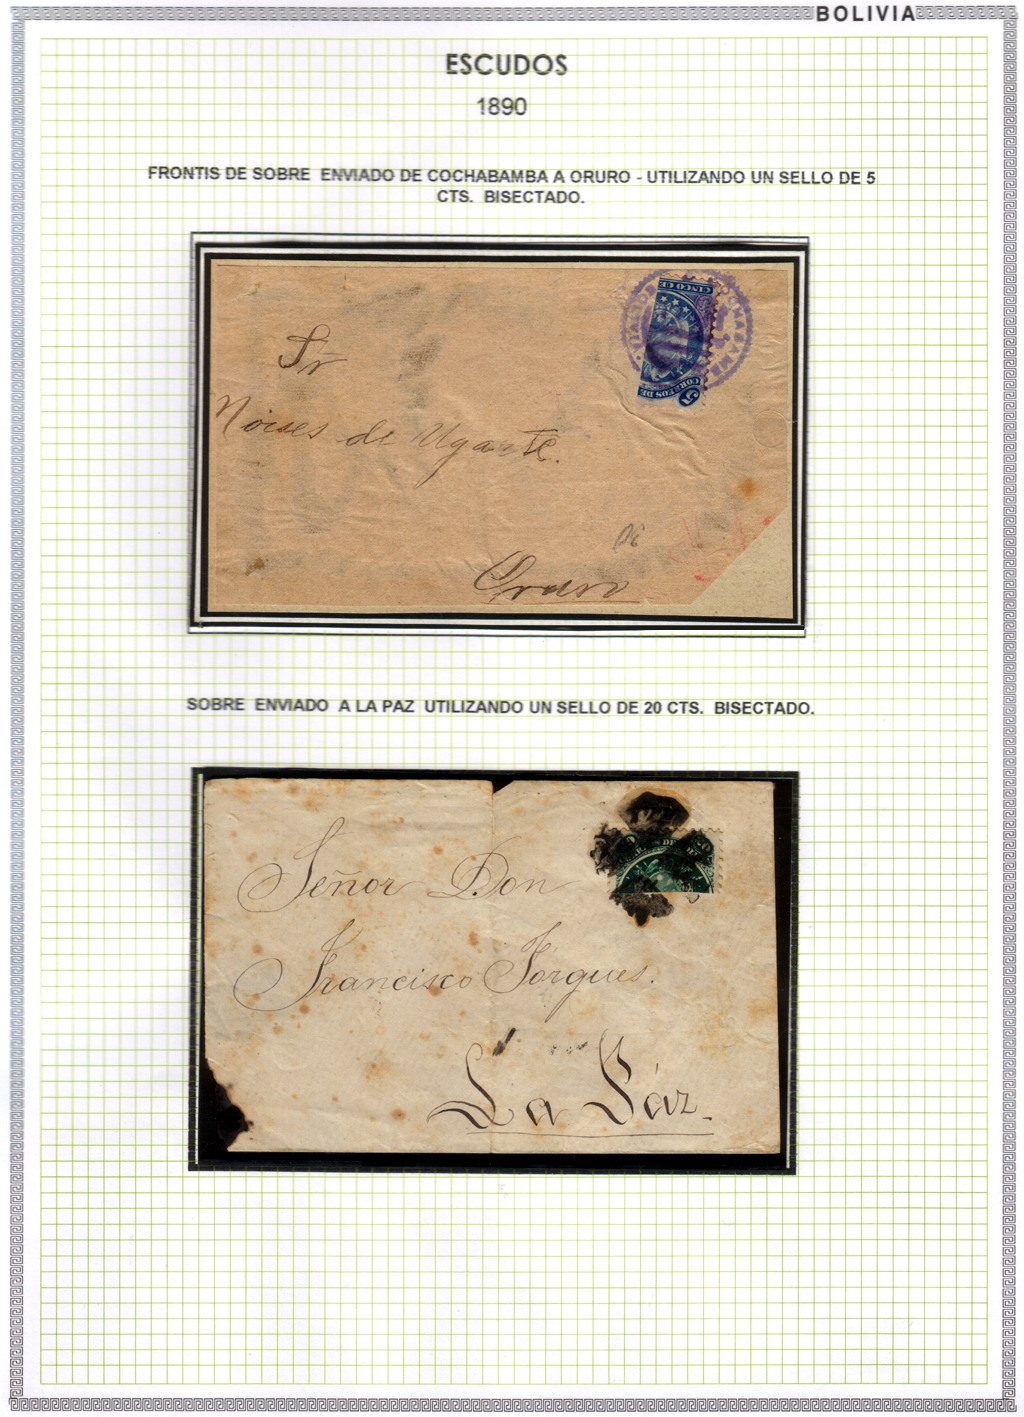 BOLIVIA
ESCUDOS
1890
FRONTIS DE SOBRE ENVIADO DE COCHABAMBA A ORURO - UTILIZANDO UN SELLO DE 5
CTS. BISECTADO.
CINCO CE
CORREOS DE
5
Sr
Moises de Ugarte.
Oruro
SOBRE ENVIADO A LA PAZ UTILIZANDO UN SELLO DE 20 CTS. BISECTADO.
Señor Don
Francisco Jorgues.
La Páz